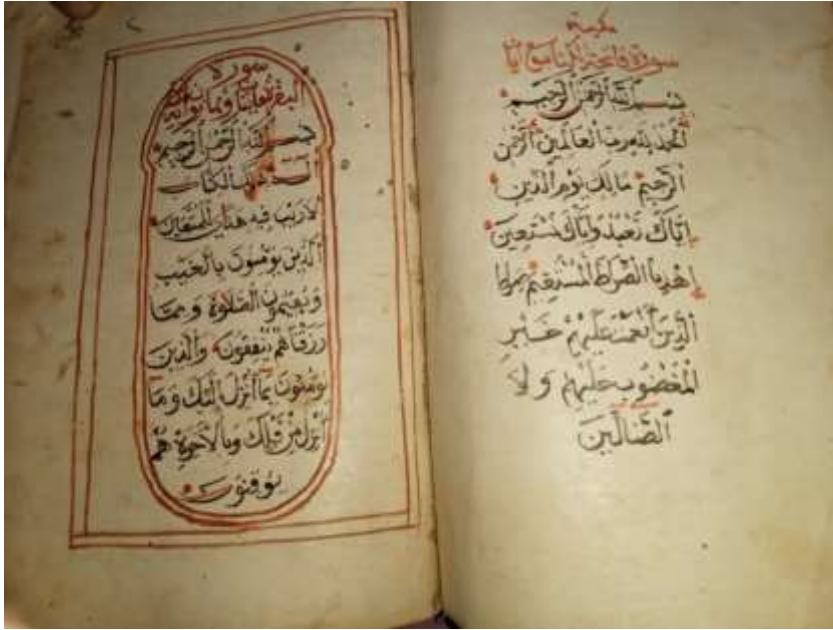 مكية
سورة فاتحة الكتاب سبع آيات
بسم الله الرحمن الرحيم
الحمد لله رب العالمين الرحمن
الرحيم مالك يوم الدين
إياك نعبد وإياك نستعين
إهدنا الصراط المستقيم صراط
الذين أنعمت عليهم غير
المغضوب عليهم ولا
الضالين
سورة
البقرة
بسم الله الرحمن الرحيم
الم ذلك الكتاب
لا ريب فيه هدى للمتقين
الذين يؤمنون بالغيب
ويقيمون الصلاة ومما
رزقناهم ينفقون والذين
يؤمنون بما أنزل إليك وما
أنزل من قبلك وبالآخرة هم
يوقنون